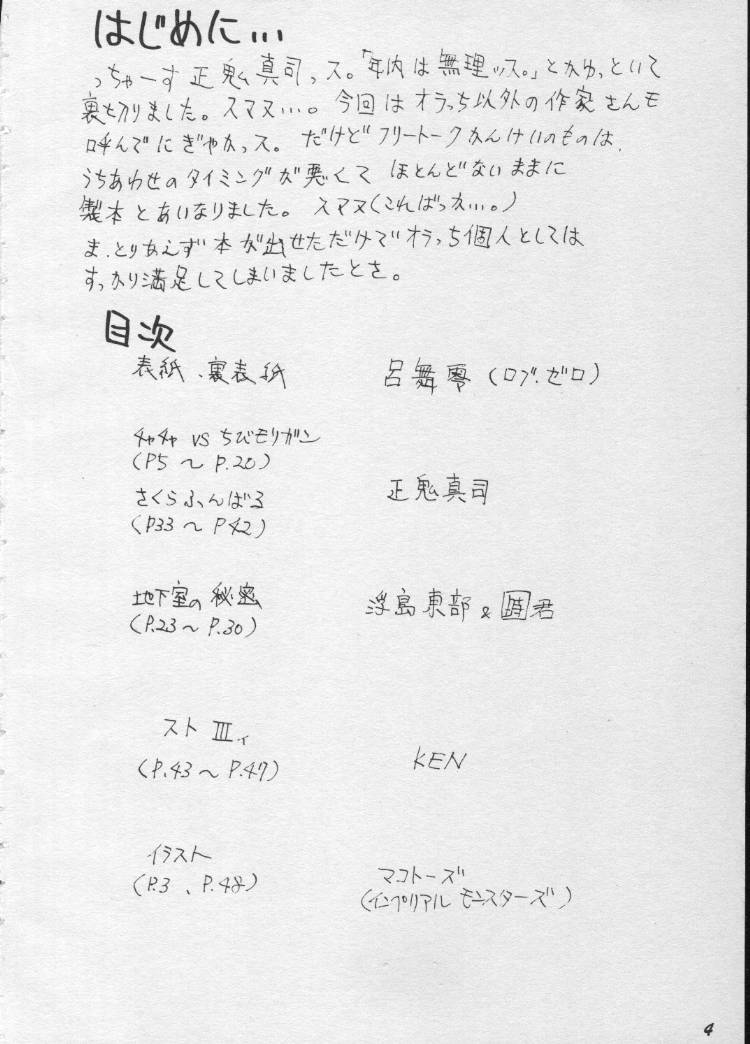 はじめに…
っちゃーす 正鬼真司っス。「年内は無理ッス。」とかゆっといて
裏を切りました。スマヌ…。今回はオラっち以外の作家さんモ
呼んでにぎやかっス。だけどフリートークかんけいのものは、
うちあわせのタイミングが悪くて ほとんどないままに
製本とあいなりました。スマヌ(こればっかい…。)
ま、とりあえず本が出せただけでオラっち個人としては
すっかり満足してしまいましたとさ。
目次
表紙、裏表紙 呂舞零(ロブ・ゼロ)
チャチャ VS ちびモリガン
(P5 〜 P.20)
さくらふんばる
(P33 〜 P42)
正鬼真司
地下室の秘密
(P.23 〜 P.30)
浮島東部 & 君
スト III
(P.43 〜 P.47)
KEN
イラスト
(P.3 、P.48)
マコトーズ
(インペリアル モンスターズ)
4